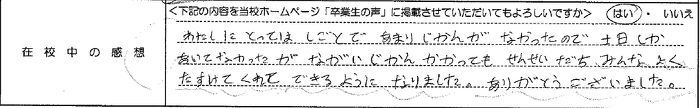 <下記の内容を当校ホームページ「卒業生の声」に掲載させていただいてもよろしいですか> はい ・ いいえ
在校中の感想
わたしにとっては しごとで あまり じかんが なかったので 土日しか
あいてなかったが ながい じかん かかっても せんせいだち みんな よく
たすけてくれて できるように なりました。ありがとうございました。